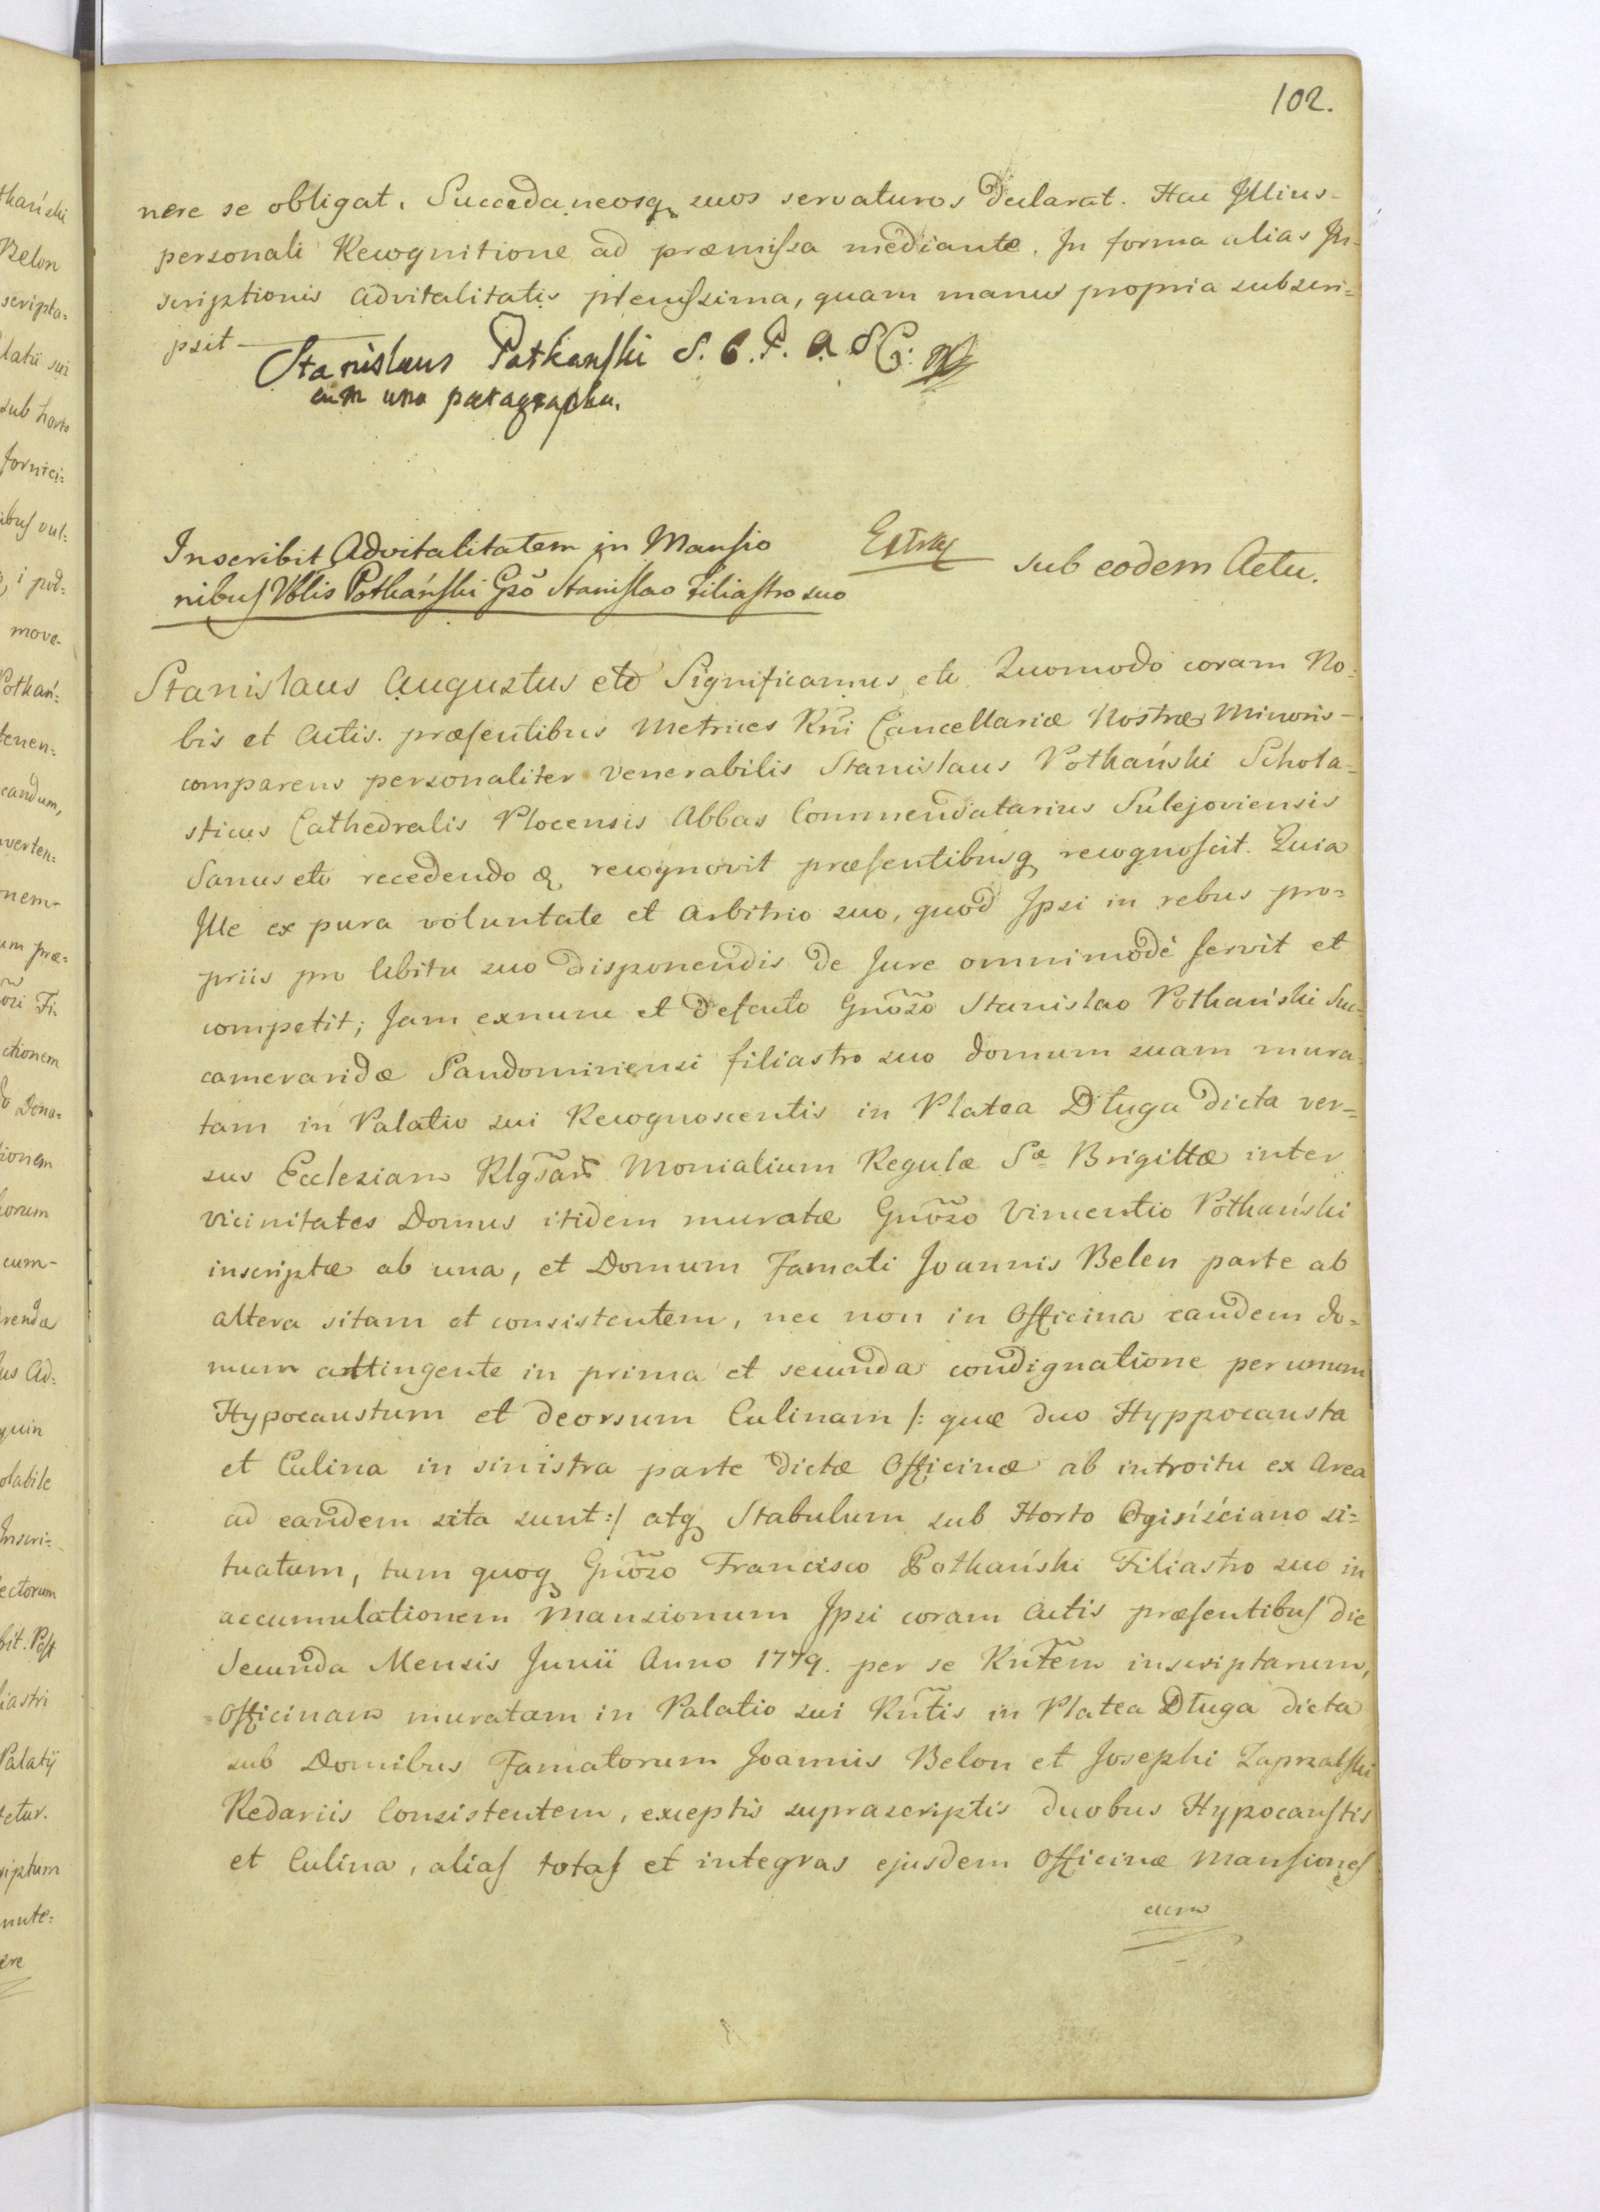 102.
nere se obligat, Succedaneosq suos servaturos declarat. Hac Illius-
personali Recognitione ad præmissa mediante. In forma alias In-
scriptionis advitalitatis plenissima, quam manus propria subscri=
psit-
Stanislaus Potkanski S. C. P. A. S C:
cum una paragrapha.
Inscribit Advitalitatem in Mansio
nibus Vblis Potkański Gso Stanislao Filiastro suo
Extra
sub eodem Actu.
Stanislaus Augustus etc Significamus etc Quomodo coram No=
bis et Actis præsentibus Metrices Rni Cancellariæ Nostræ Minoris-
comparens personaliter venerabilis Stanislaus Potkański Schola-
sticus Cathedralis Plocensis Abbas Commendatarius Sulejoviensis
Sanus etc recedendo & recognovit præsentibusq recognoscit. Quia
Ille ex pura voluntate et Arbitrio suo, quod Ipsi in rebus pro=
priis pro libitu suo disponendis de Jure omnimodè servit et
competit; Jam exnunc et defacto Gnoso Stanislao Potkański Suc-
cameraridæ Sandomiriensi filiastro suo domum suam mura-
tam in Palatio sui Recognoscentis in Platea Długa dicta ver=
sus Ecclesiam Rlgsar Monialium Regulæ Sæ Brigittæ inter
vicinitates Domus itidem muratæ Gnoso Vincentio Potkański
inscriptæ ab una, et Domum Famati Joannis Belen parte ab
altera sitam et consistentem, nec non in Officina eandem do=
mum attingente in prima et secunda condignatione per unum
Hypocaustum et deorsum Culinam /: quæ duo Hyppocausta
et Culina in sinistra parte dictæ Officinæ ab introitu ex Area
ad eandem sita sunt:/ atq Stabulum sub Horto Ogisiściano si=
tuatum, tum quoq Gnoso Francisco Potkański Filiastro suo in
accumulationem Mansionum Ipsi coram Actis præsentibus die
Secunda Mensis Junii Anno 1779. per se Rntem inscriptarum,
Officinam muratam in Palatio sui Rntis in Platea Długa dicta
sub Domibus Famatorum Joannis Belon et Josephi Zaprzalski
Redariis Consistentem, exceptis suprascriptis duobus Hypocaustis
et Culina, alias totas et integras ejusdem Officinæ Mansiones
cum